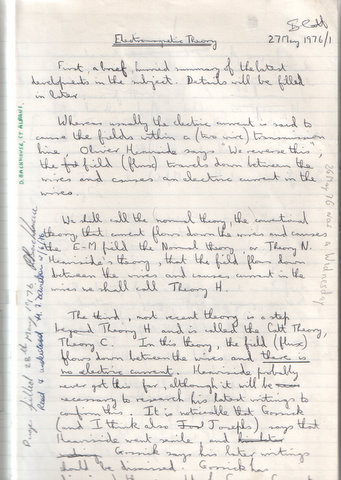 I Catt
27 May 1976/1
Electromagnetic Theory
First, a brief, hurried summary of the latest
developments in the subject. Details will be filled
in later.
Whereas usually the electric current is said to
cause the fields within a (two wire) transmission
line, Oliver Heaviside says "We reverse this";
the field (flux) travels down between the
wires and causes an electric current in the
wires.
We shall call the normal theory, the conventional
theory that current flows down the wires and causes
the E-M field the Normal theory, or Theory N.
Heaviside's theory, that the field flows down
between the wires and causes current in the
wires we shall call Theory H.
The third, most recent theory is a step
beyond Theory H and is called the Catt Theory,
Theory C. In this theory, the field (flux)
flows down between the wires and there is
no electric current. Heaviside probably
never got this far, although it will be
necessary to research his latest writings to
confirm this. It is noticeable that Gossick
(and I think also Josephs) says that
Heaviside went senile, and
Gossick says his later writings
should be dismissed. Gossick has
D. BACKHOUSE, ST ALBANS.
Page filled 28th May 1976
Read & understood
26 May 76 was a Wednesday